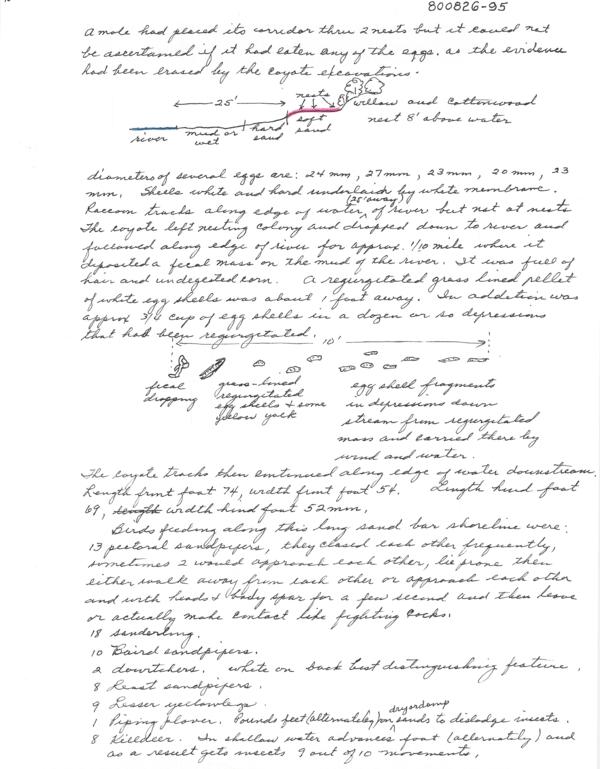 800826-95
A mole had placed its corridor thru 2 nests but it could not
be ascertained if it had eaten any of the eggs, as the evidence
had been erased by the coyote excavations.
25'
nests
willow and cottonwood
nest 8' above water
river
mud or wet
hard sand
soft sand
diameters of several eggs are: 24 mm, 27 mm, 23 mm, 20 mm, 23
mm. Shells white and hard underlaid by white membrane.
Raccoon tracks along edge of water (25' away) of river but not at nests
The coyote left nesting colony and dropped down to river and
followed along edge of river for approx. 1/10 mile where it
deposited a fecal mass on the mud of the river. It was full of
hair and undigested corn. A regurgitated grass lined pellet
of white egg shells was about 1 foot away. In addition was
approx 3/4 cup of egg shells in a dozen or so depressions
that had been regurgitated.
10'
fecal dropping
grass-lined regurgitated egg shells & some yellow yock
egg shell fragments
in depressions down
stream from regurgitated
mass and carried there by
wind and water.
The coyote tracks then continued along edge of water downstream.
Length front foot 74, width front foot 54. Length hind foot
69, length width hind foot 52 mm.
Birds feeding along this long sand bar shoreline were:
13 pectoral sandpipers, they closed each other frequently,
sometimes 2 would approach each other, lie prone then
either walk away from each other or approach each other
and with heads & body spar for a few second and then leave
or actually make contact like fighting cocks.
18 sanderling.
10 Baird sandpipers.
2 dowitchers. white on back best distinguishing feature.
8 Least sandpipers.
9 Lesser yellowlegs.
1 Piping plover. Pounds feet (alternately) on dry or damp sands to dislodge insects.
8 Killdeer. In shallow water advances foot (alternately) and
as a result gets insects 9 out of 10 movements.